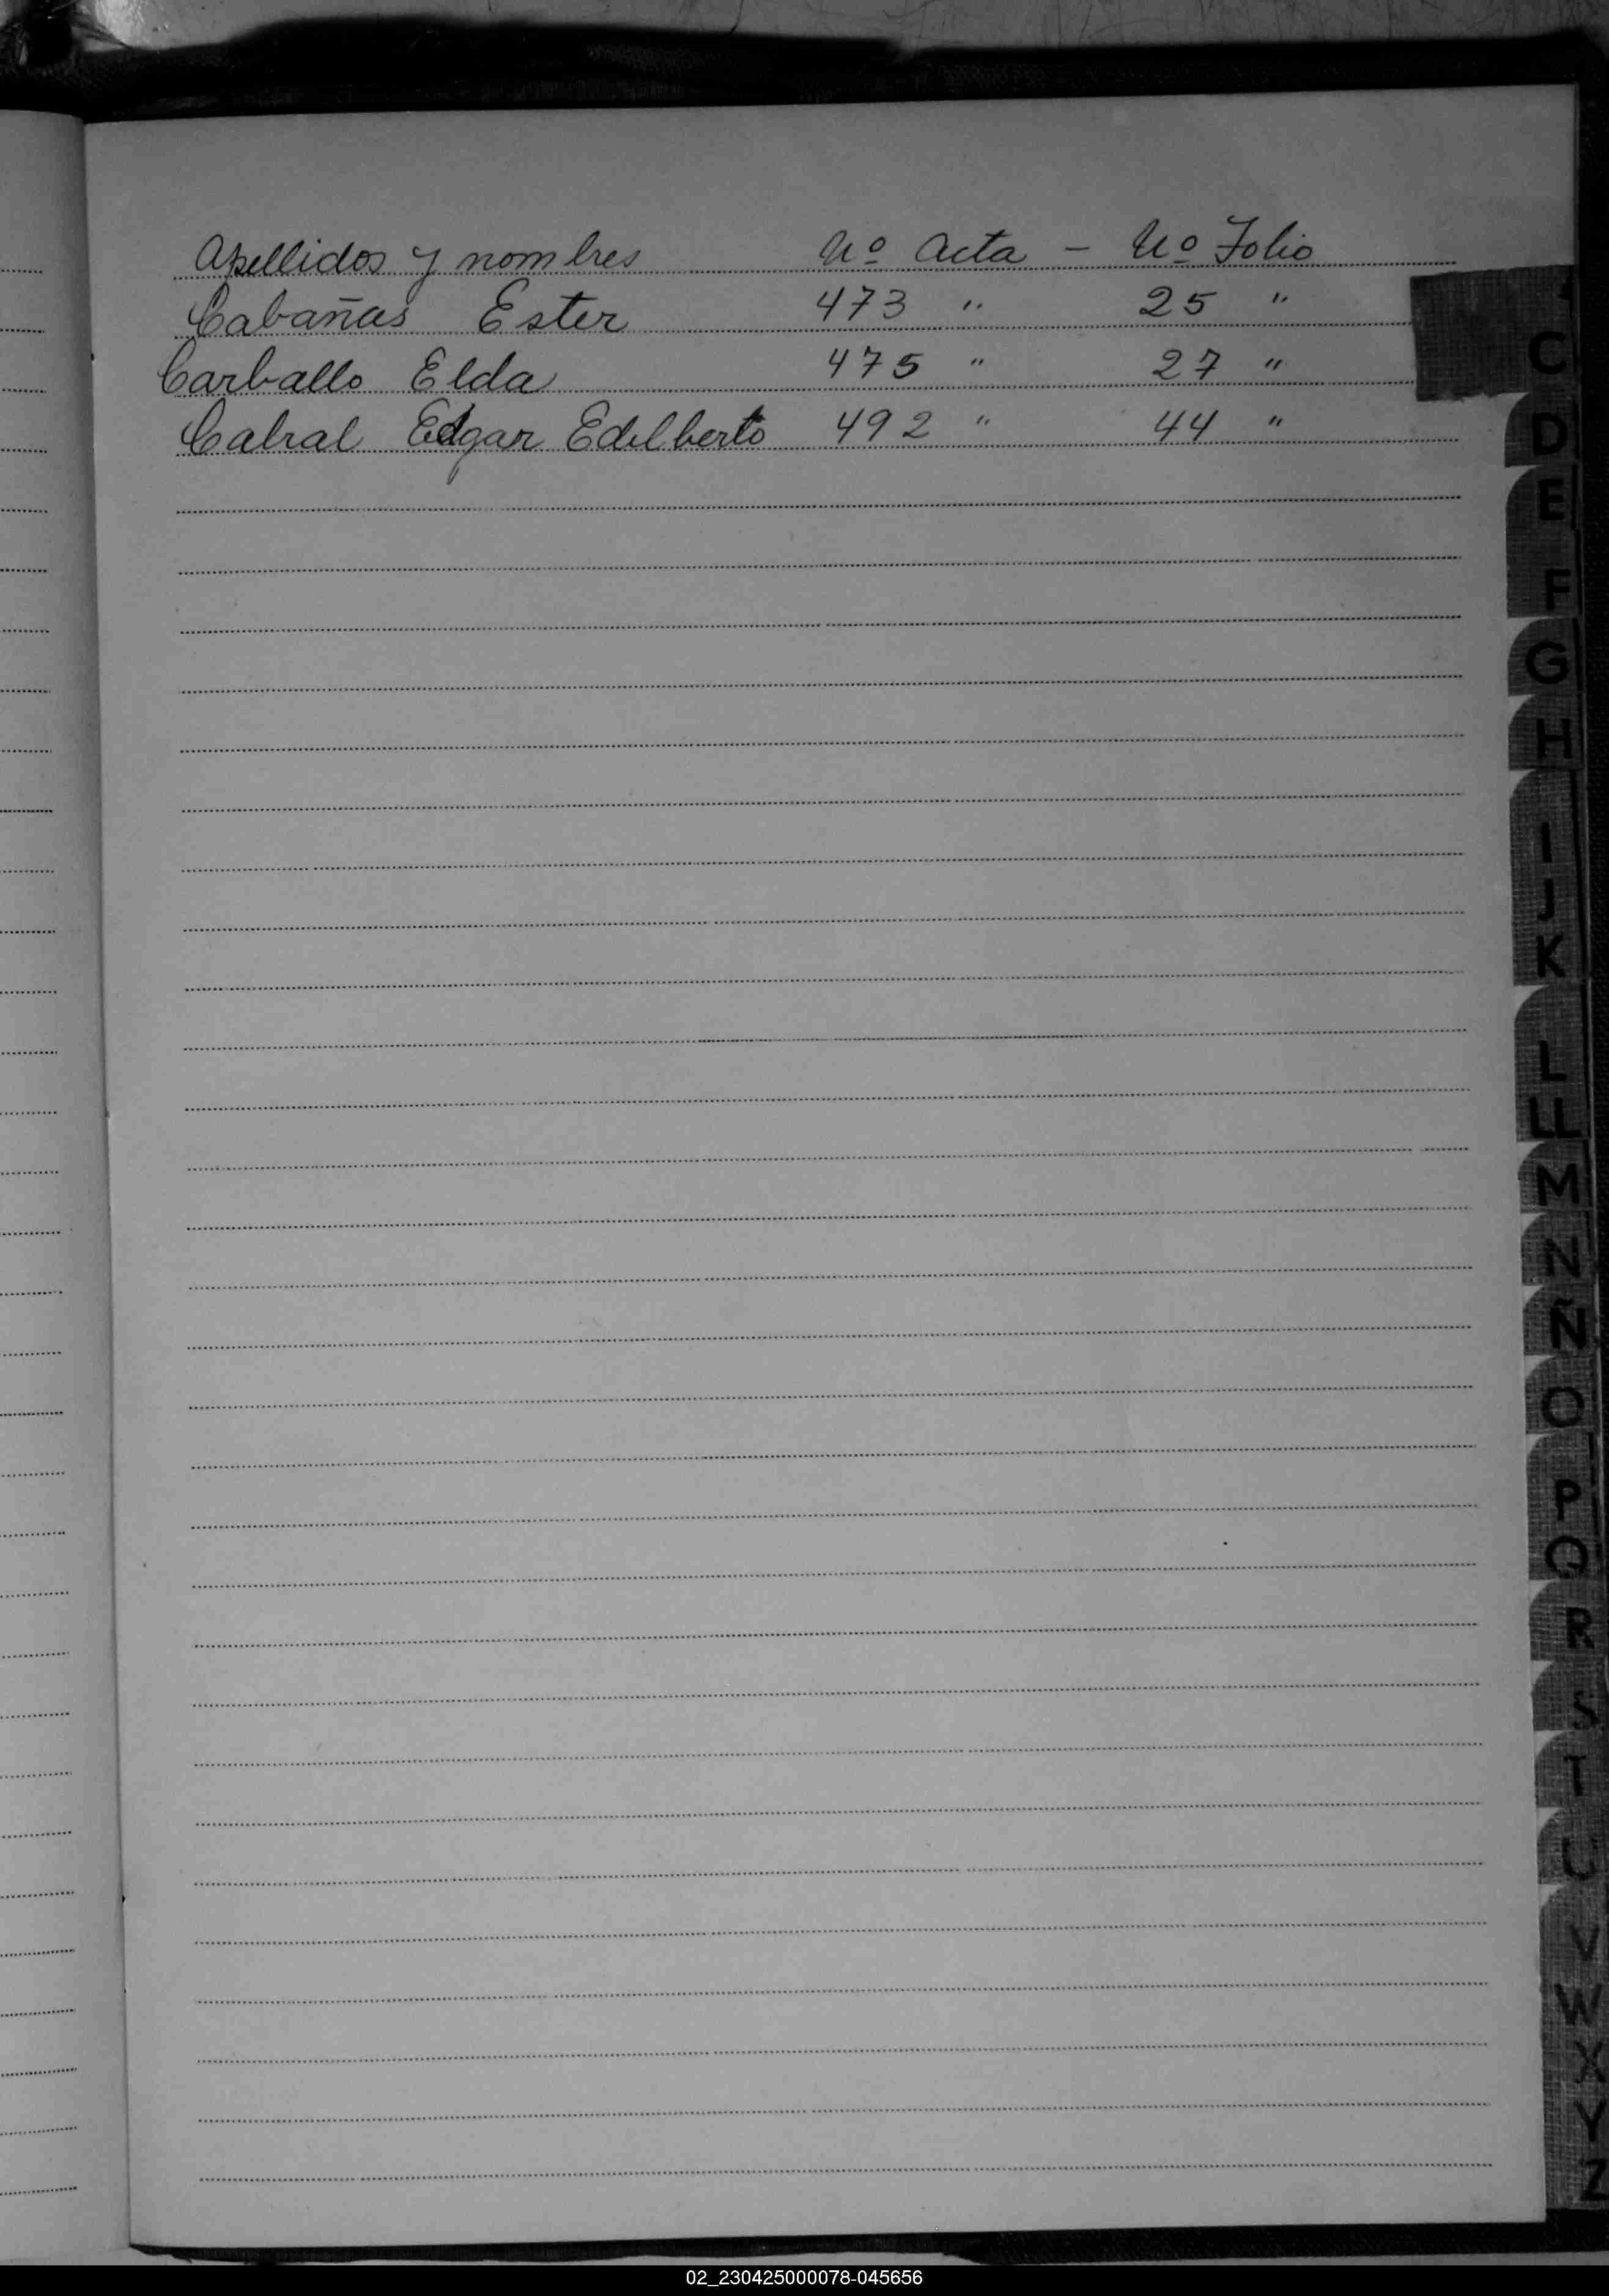 Apellidos y nombres Nº Acta - Nº Folio
Cabañas Ester 473 " 25 "
Carballo Elda 475 " 27 "
Cabral Edgar Edelberto 492 " 44 "
C
D
E
F
G
H
I
J
K
L
LL
M
N
Ñ
O
P
Q
R
S
T
U
V
W
X
Y
Z
02_230425000078-045656